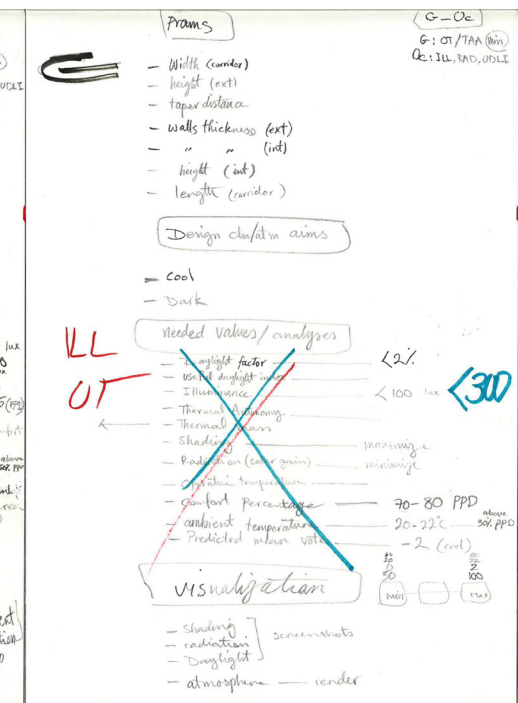 Prams
G_Oc
G: OT/TAA min
Oc: ILL, RAD, UDLI
UDLI
— Width (corridor)
— height (ext)
— taper distance
— walls thickness (ext)
— " " (int)
— height (int)
— length (corridor)
Design clm/atm aims
— Cool
— Dark
needed values/analyses
ILL
OT
— Daylight factor — <2%
— useful daylight index
— Illuminance — <100 lux <300
— Thermal Autonomy
— Thermal mass
— Shading — maximize
— Radiation (solar gain) — minimize
— Operative temperature
— Comfort percentage — 70-80 PPD
— ambient temperature — 20-22°c — above 30% PPD
— Predicted mean vote — -2 (cool)
lux
above
visualization
0
50
2
100
min
max
— Shading
— radiation
— Daylight
screenshots
— atmosphere — render